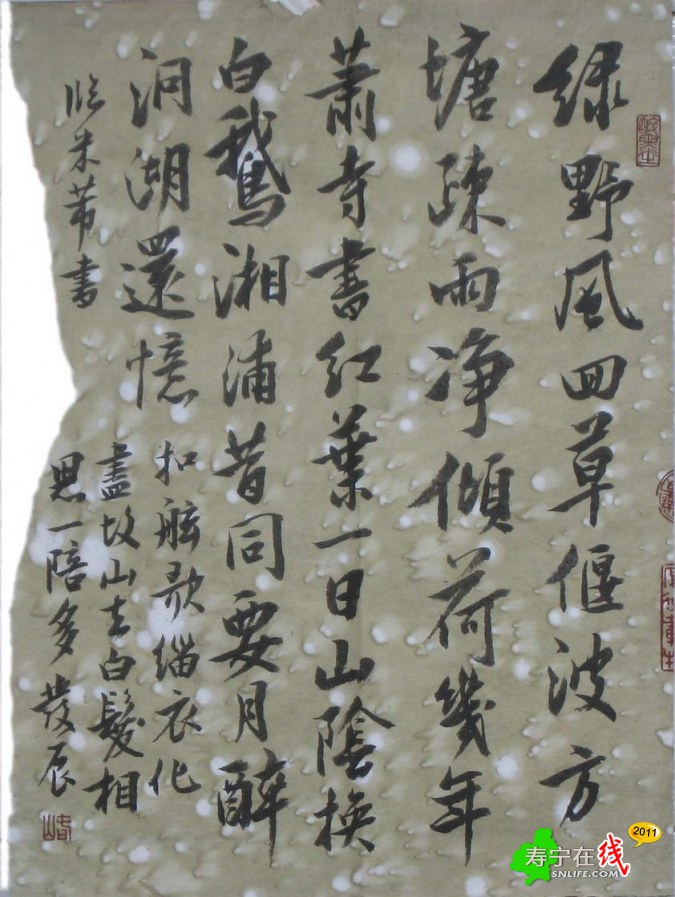 綠野風回草偃波方
塘疎雨净傾荷幾年
蕭寺書紅葉一日山陰換
白鵝湘浦昔同要月醉
洞湖還憶
扣舷歌緇衣化
盡故山去白髮相
思一陪多
臨米芾書
2011
寿宁在线
SNLIFE.COM